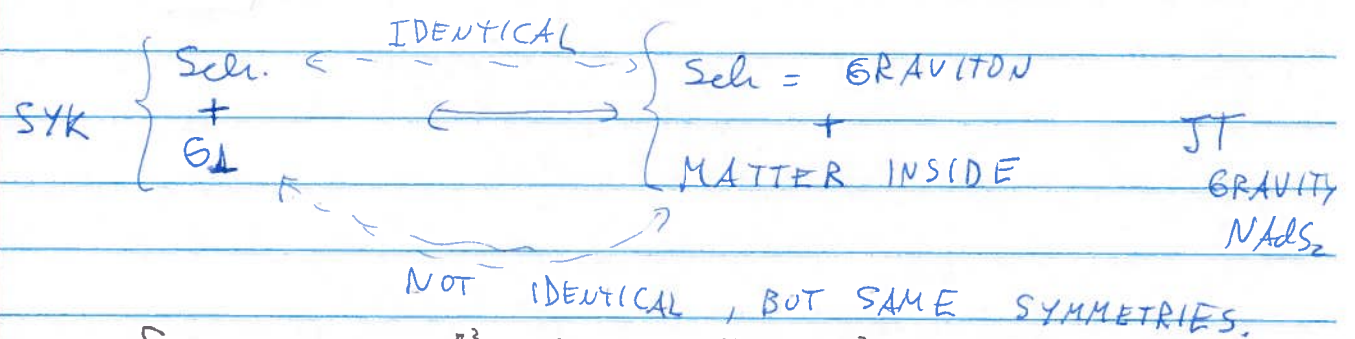 IDENTICAL
Sch. Sch = GRAVITON
SYK + + JT
G⊥ MATTER INSIDE GRAVITY
NAdS₂
NOT IDENTICAL, BUT SAME SYMMETRIES.